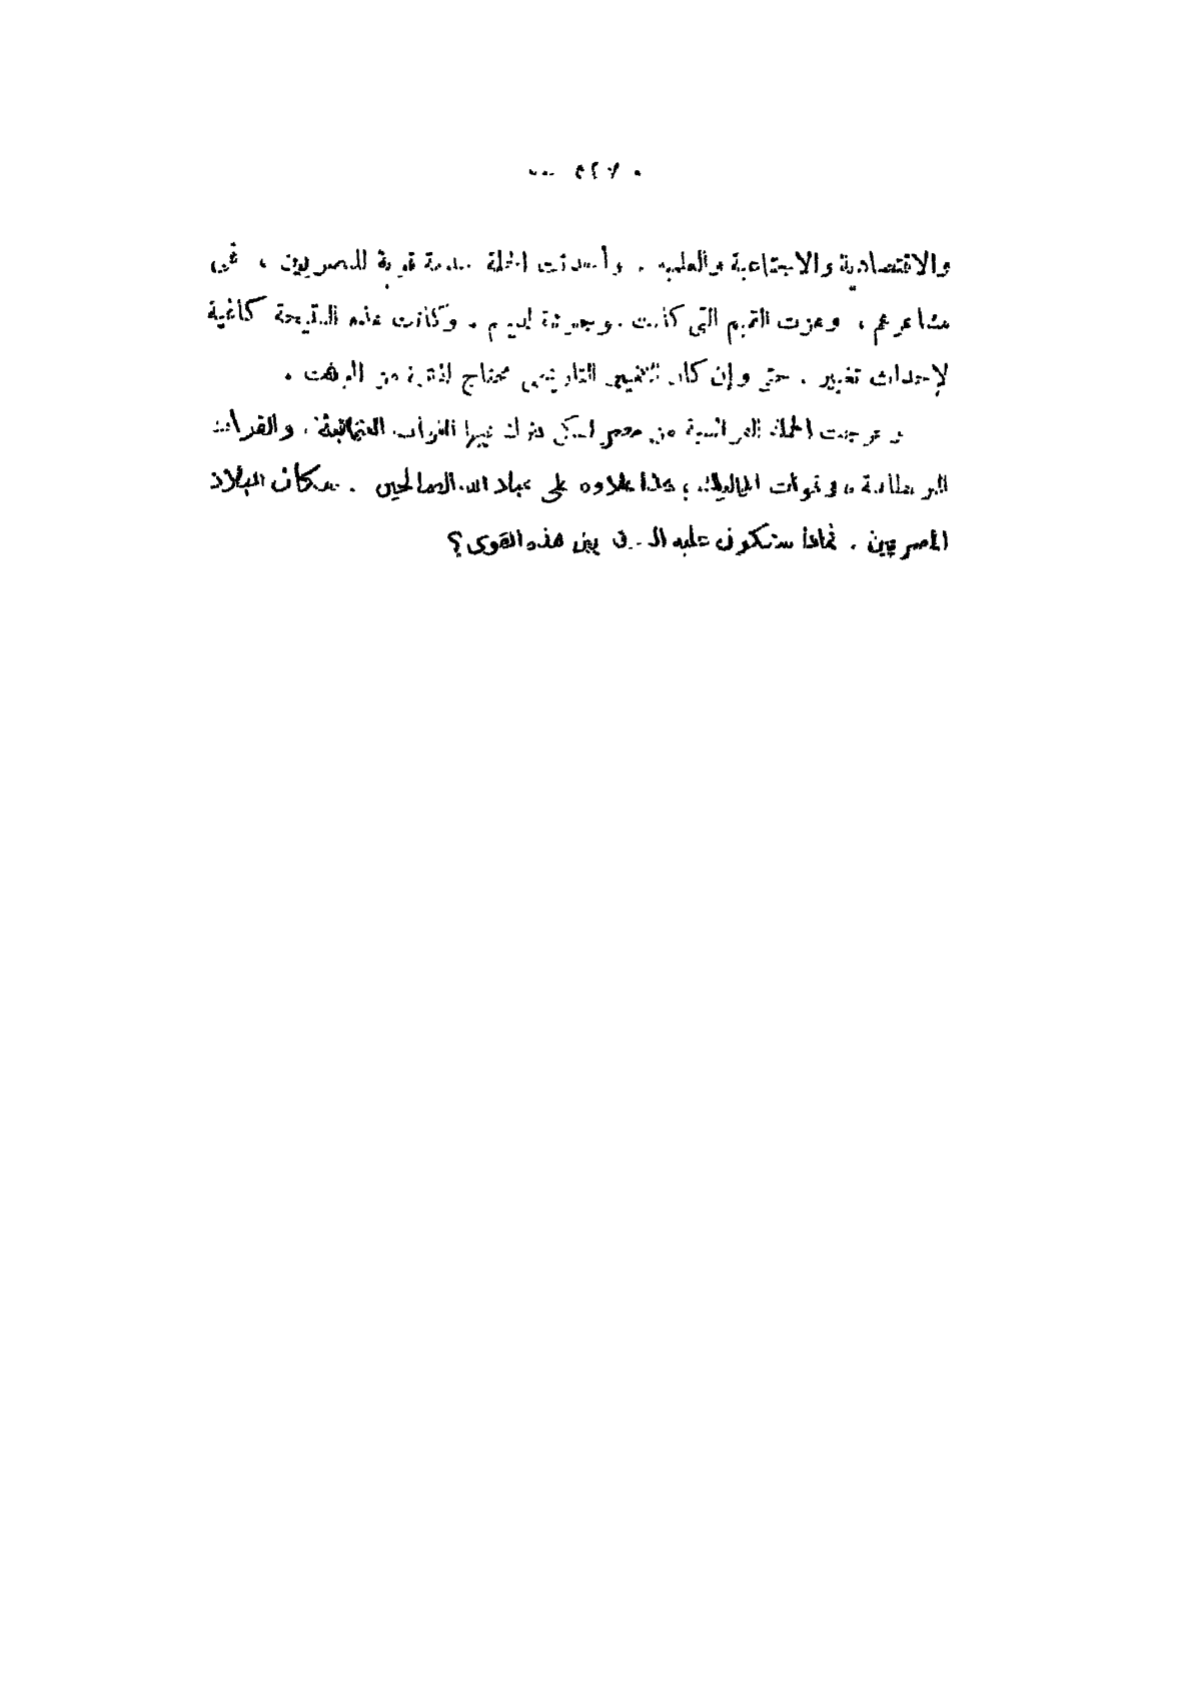 والاقتصادية والاجتماعية والعلمية . وأحدثت الحملة صدمة قوية للمصريين ، فى
مشاعرهم ، وهزت القيم التى كانت موجودة لديهم . وكانت هذه النتيجة كافية
لإحداث تغيير . حتى وإن كان التغيير التاريخى محتاج لفترة من الوقت .
وخرجت الحملة الفرنسية من مصر لكى تترك فيها القوات العثمانية ، والقوات
البريطانية ، وقوات المماليك ؛ هذا علاوة على عباد الله الصالحين . سكان البلاد
المصريين . فماذا ستكون عليه بين هذه القوى ؟